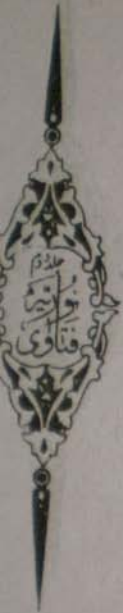 جلد دوم
فتاویٰ
نوریہ